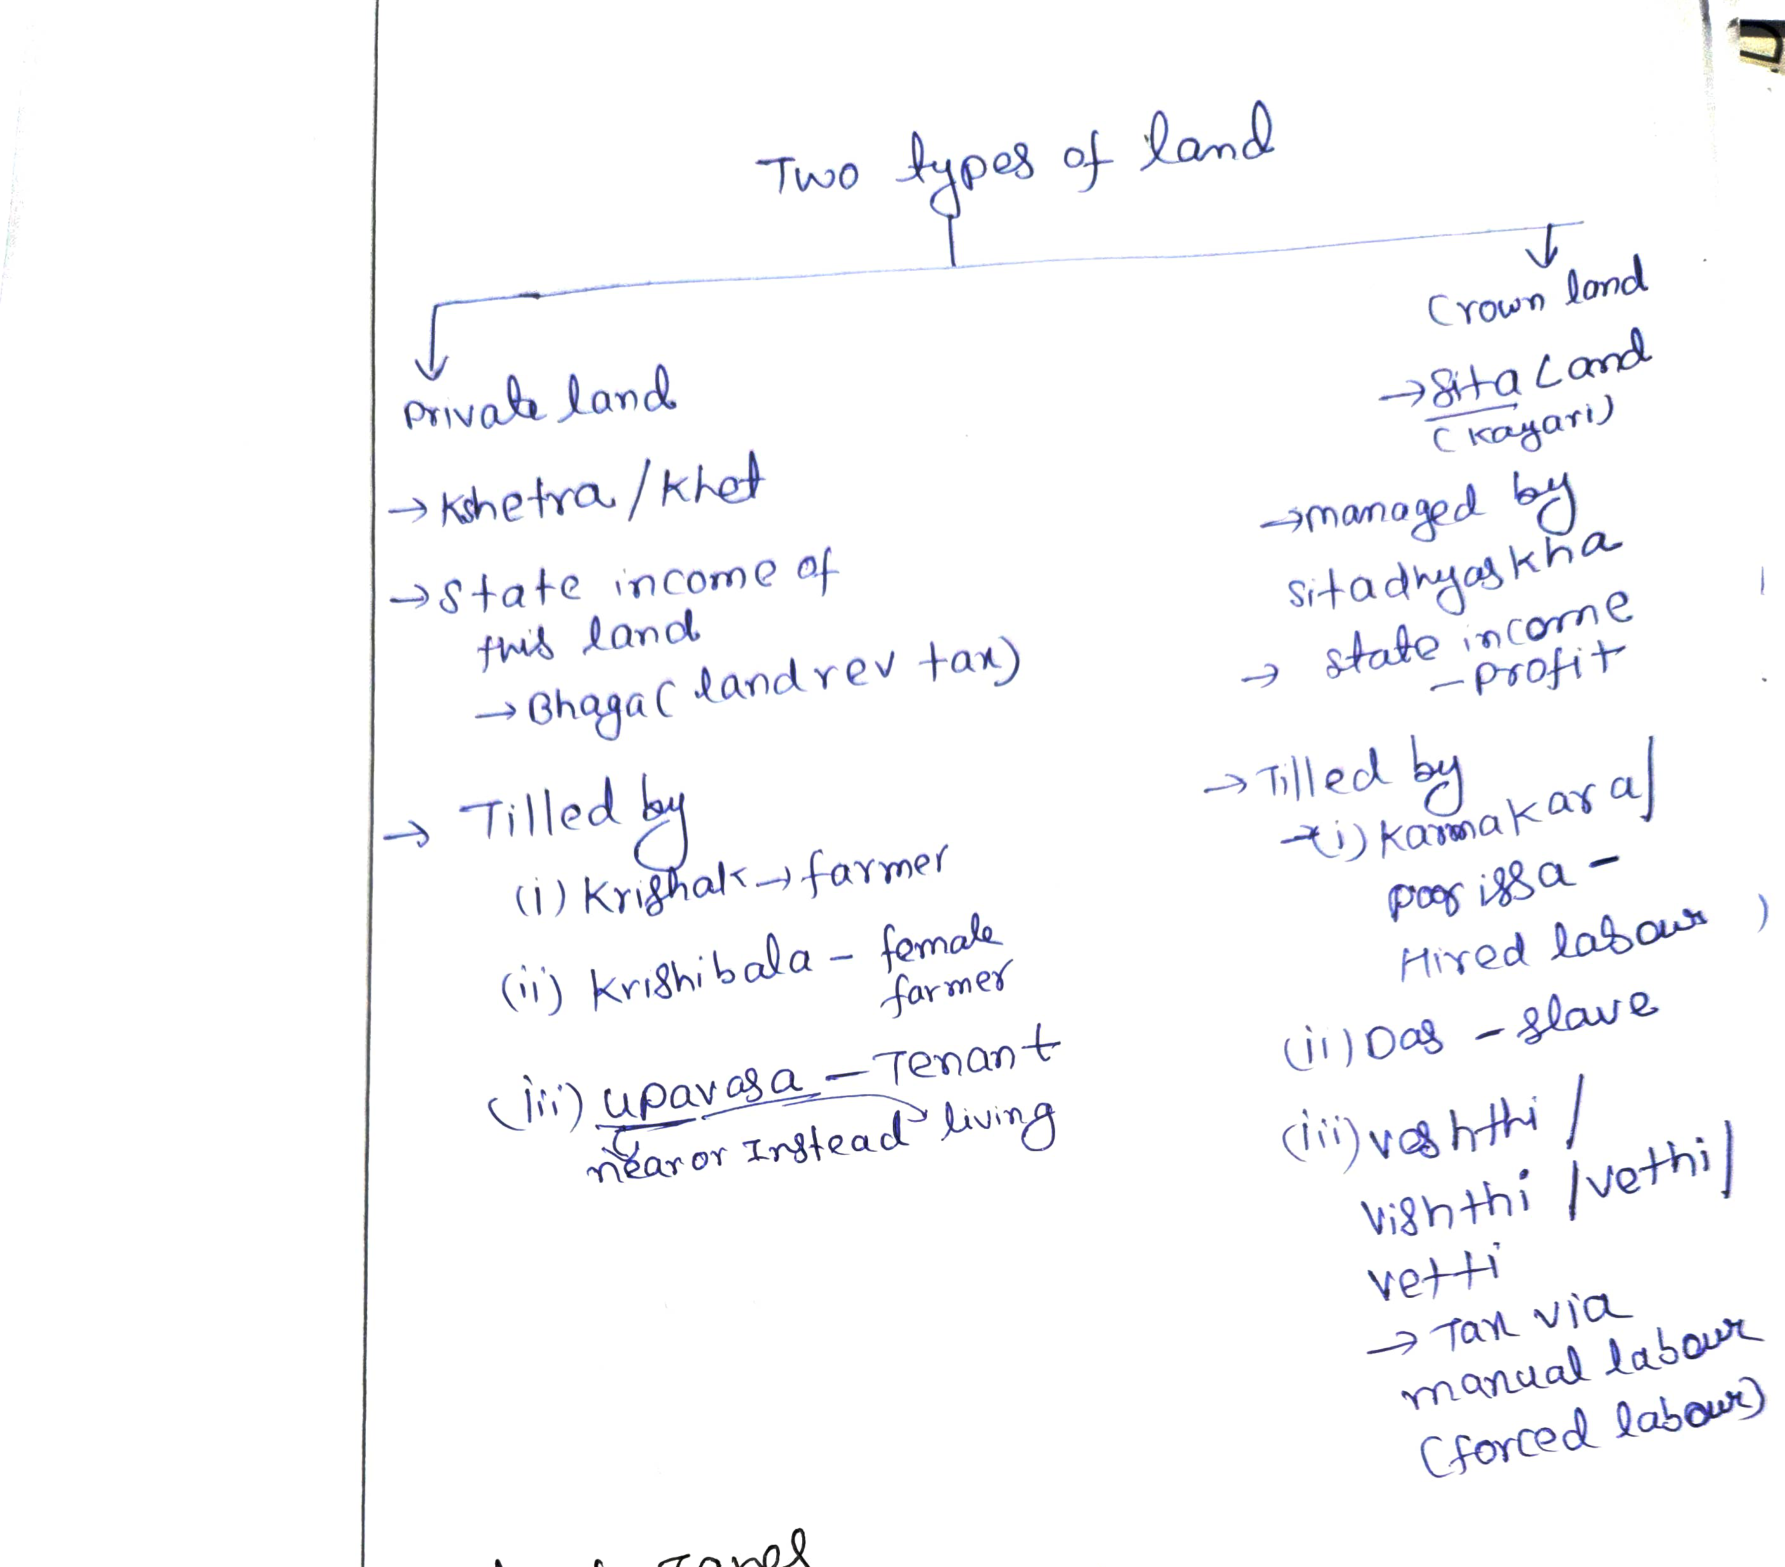 Two types of land
Private land
→ Kshetra / Khet
→ State income of
this land
→ Bhaga ( land rev tax)
→ Tilled by
(i) Krishak → farmer
(ii) Krishibala – female
farmer
(iii) upavasa – Tenant
near or Instead living
Crown land
→ Sita Land
(Kayari)
→ managed by
sitadhyaskha
→ state income
– Profit
→ Tilled by
(i) Karmakara /
porissa –
Hired labour
(ii) Das – slave
(iii) veshthi /
vishthi / vethi /
vetti
→ Tax via
manual labour
(forced labour)